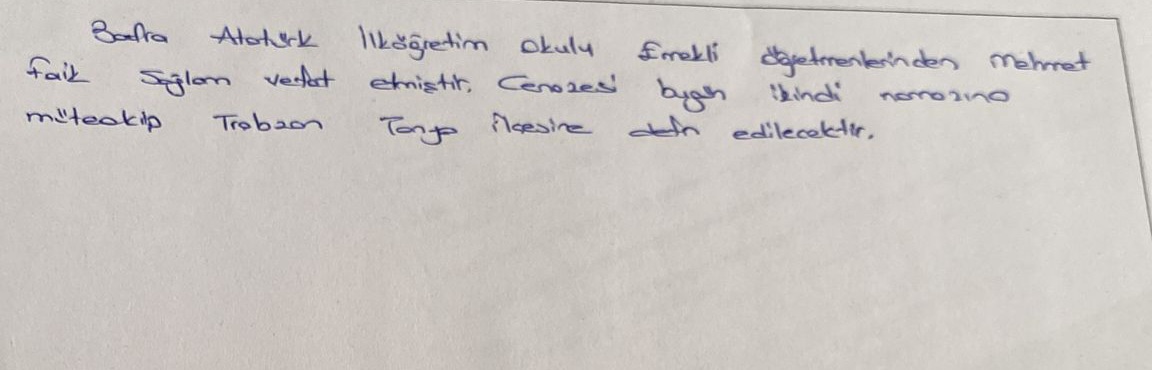 Bafra Atatürk İlköğretim Okulu Emekli öğretmenlerinden Mehmet
Faik Sağlam vefat etmiştir. Cenazesi bugün ikindi namazına
müteakip Trabzon Tonya ilçesine defn edilecektir.